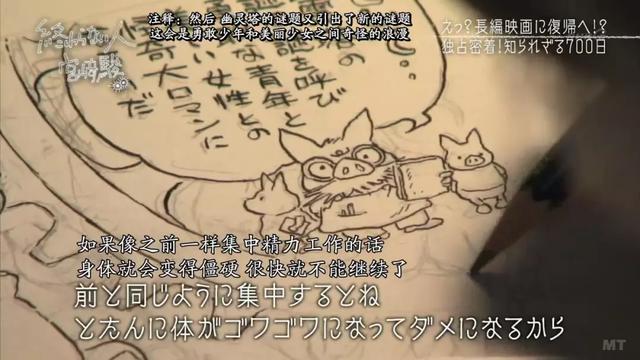 終わらない人
宮﨑駿
注释：然后 幽灵塔的谜题又引出了新的谜题
这会是勇敢少年和美丽少女之间奇怪的浪漫
えっ？長編映画に復帰へ！？
独占密着！知られざる700日
謎を呼び
な青年と
い女性との
奇大ロマンに
だ
如果像之前一样集中精力工作的话
身体就会变得僵硬 很快就不能继续了
前と同じように集中するとね
とたんに体がゴワゴワになってダメになるから
MT